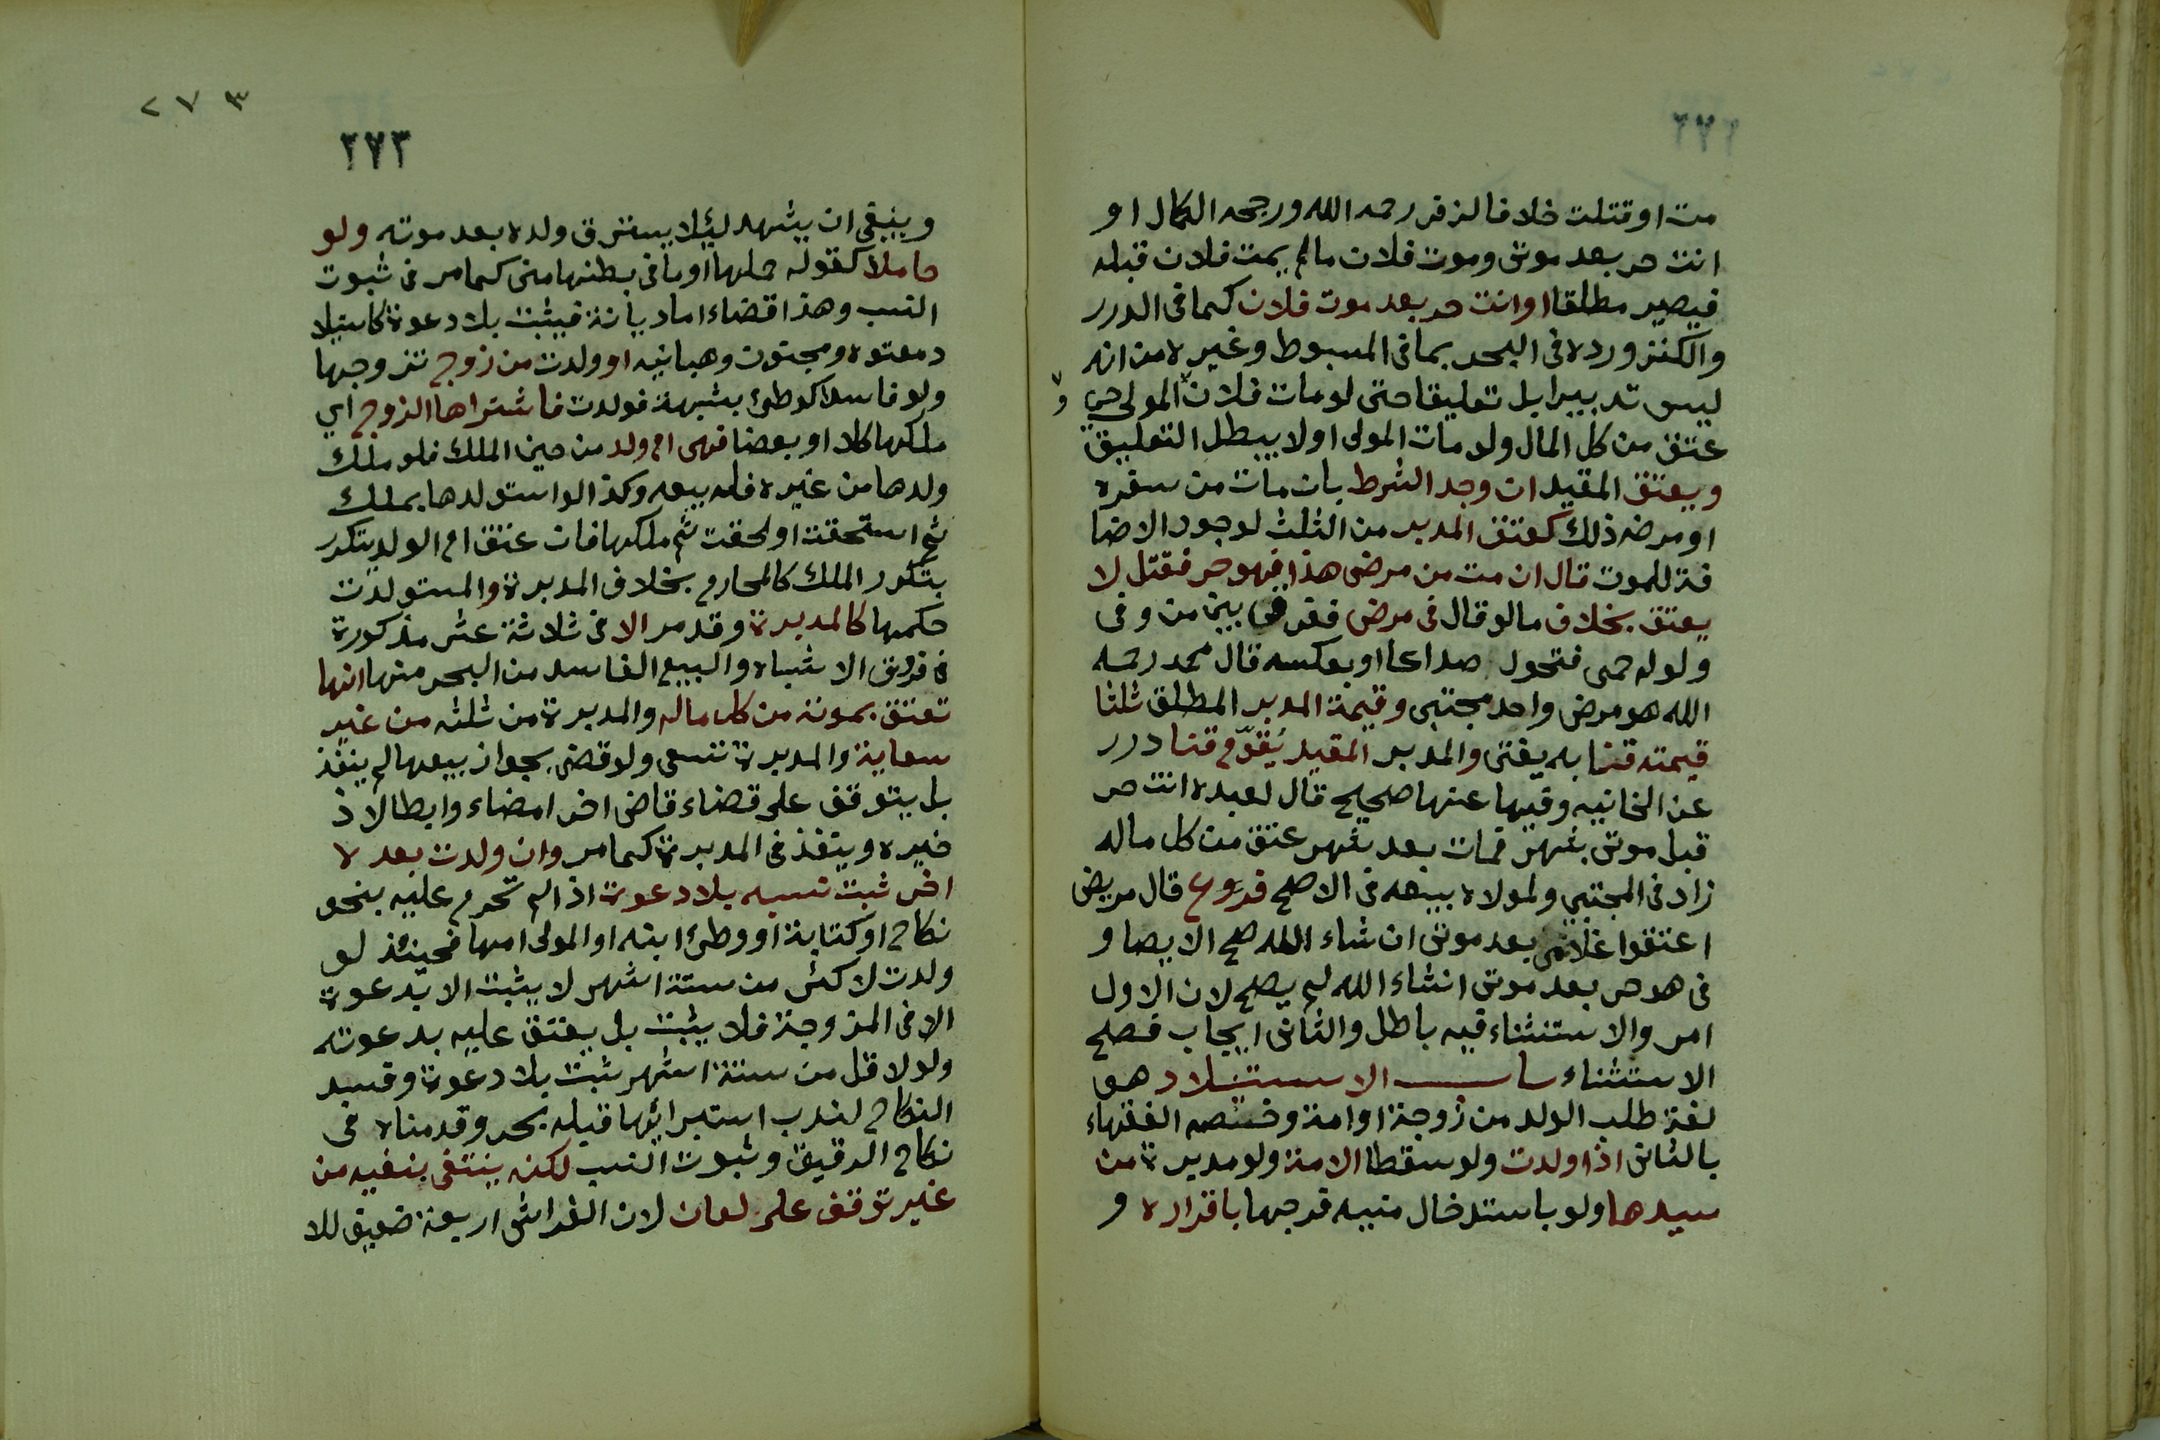 مت او قتلت خلافا لزفر رحمه الله ورجحه الكمال او
انت حر بعد موتى وموت فلان مالم يمت فلان قبله
فيصير مطلقا او انت حر بعد موت فلان كما فى الدرر
والكنز ورده فى البحر بما فى المبسوط وغيره من انه
ليس تدبيرا بل تعليقا حتى لو مات فلان والمولى حي
عتق من كل المال ولو مات المولى اولا يبطل التعليق
ويعتق المقيد ان وجد الشرط بان مات من سفره
او مرضه ذلك كعتق المدبر من الثلث لوجود الاضا
فة للموت قال ان مت من مرضى هذا فهو حر فقتل لا
يعتق بخلاف مالو قال فى مرضى ففرق بين من وفى
ولو له حمى فتحول صداعا او بعكسه قال محمد رحمه
الله هو مرض واحد مجتبى وقيمة المدبر المطلق ثلثا
قيمته قنا به يفتى والمدبر المقيد يُقوّم قنا درر
عن الخانيه وفيها عنها صحيح قال لعبده انت حر
قبل موتى بشهر فمات بعد شهر عتق من كل ماله
زاد فى المجتبى ولمولاه بيعه فى الاصح فروع قال مريض
اعتقوا غلامى بعد موتى ان شاء الله صح الايصا و
فى هو حر بعد موتى انشاء الله لم يصح لان الاول
امر والاستثناء فيه باطل والثانى ايجاب فصح
الاستثناء باب الاستيلاد هو
لغة طلب الولد من زوجة او امة وخصه الفقهاء
بالثانى اذا ولدت ولو سقطا الامة ولو مدبرة من
سيدها ولو باستدخال منيه فرجها باقراره و
٢٧٣
٢٧٣
وينبغى ان يشهد ليلا يسترق ولده بعد موته ولو
حاملا كقوله حملها او ما فى بطنها منى كما مر فى ثبوت
النسب وهذا قضاء اما ديانة فيثبت بلا دعوة كاستيلا
د معتوه ومجنون وهبانيه او ولدت من زوج تزوجها
ولو فاسدا كوطئ بشبهة فولدت فاشتراها الزوج اي
ملكها كلا او بعضا فهى ام ولد من حين الملك فلو ملك
ولدها من غيره فله بيعه وكذا لو استولدها بملك
ثم استحقت او لحقت ثم ملكها فان عتق ام الولد يتكرر
بتكرر الملك كالمحارم بخلاف المدبرة والمستولدة
حكمها كالمدبرة وقد مر الا فى ثلاثة عشر مذكورة
فى فروق الاشباه والبيع الفاسد من البحر منها انها
تعتق بموته من كل ماله والمدبرة من ثلثه من غير
سعاية والمدبرة تسعى ولو قضى بجواز بيعها لم ينفذ
بل يتوقف على قضاء قاضى اخر امضاء وابطالا ذ
خيره وينفذ فى المدبرة كما مر وان ولدت بعد لا
اخر ثبت نسبه بلا دعوة اذا لم تحرم عليه بنحو
نكاح او كتابة او وطئ ابنه او المولى امها فحينئذ لو
ولدت لاكثر من ستة اشهر لا يثبت الا بدعوة
الا فى المزوجة فلا يثبت بل يعتق عليه بدعوته
ولو لاقل من ستة اشهر ثبت بلا دعوة وفسد
النكاح لندب استبرائها قبله بحر وقدمناه فى
نكاح الرقيق وثبوت النسب لكنه ينتفى بنفيه من
غير توقف على لعان لان الفراش اربعة ضعيف للا